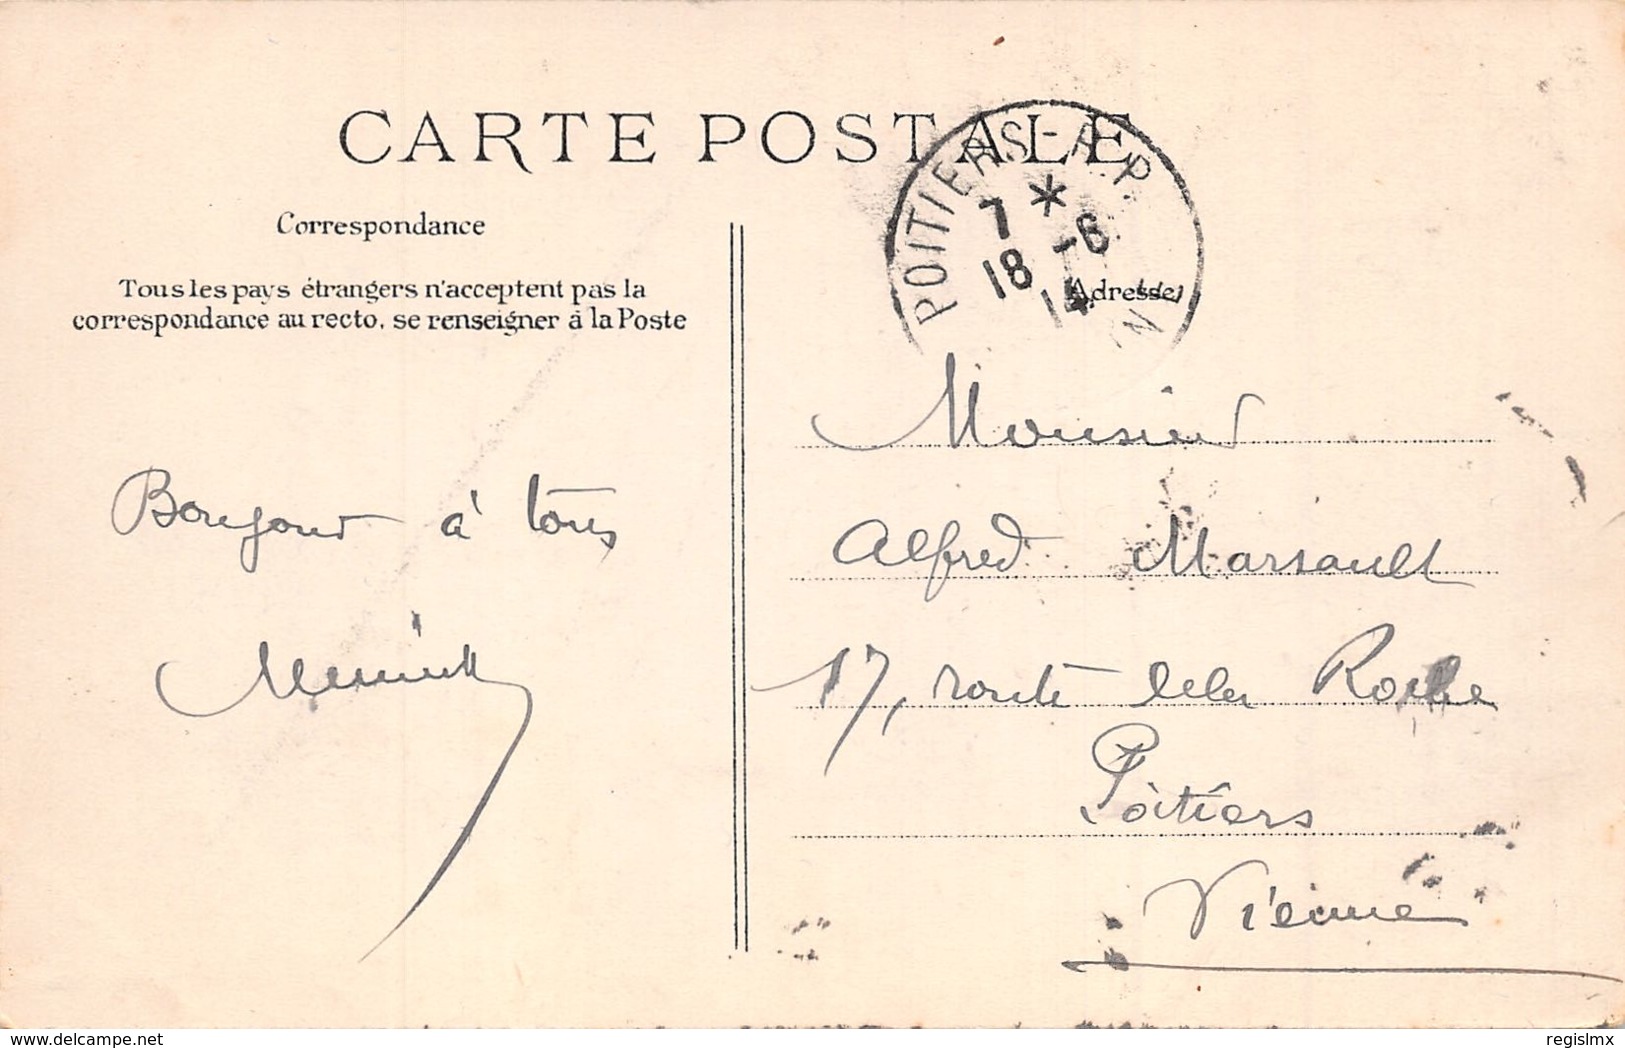 CARTE POSTALE
POITIERS - R.P.
7 *
18 - 6
14
Correspondance
Tous les pays étrangers n'acceptent pas la
correspondance au recto, se renseigner à la Poste
Adresse
Bonjour à tous
Monsieur
Alfred Marsault
17, route de la Roche
Poitiers
Vienne
www.delcampe.net
regislmx